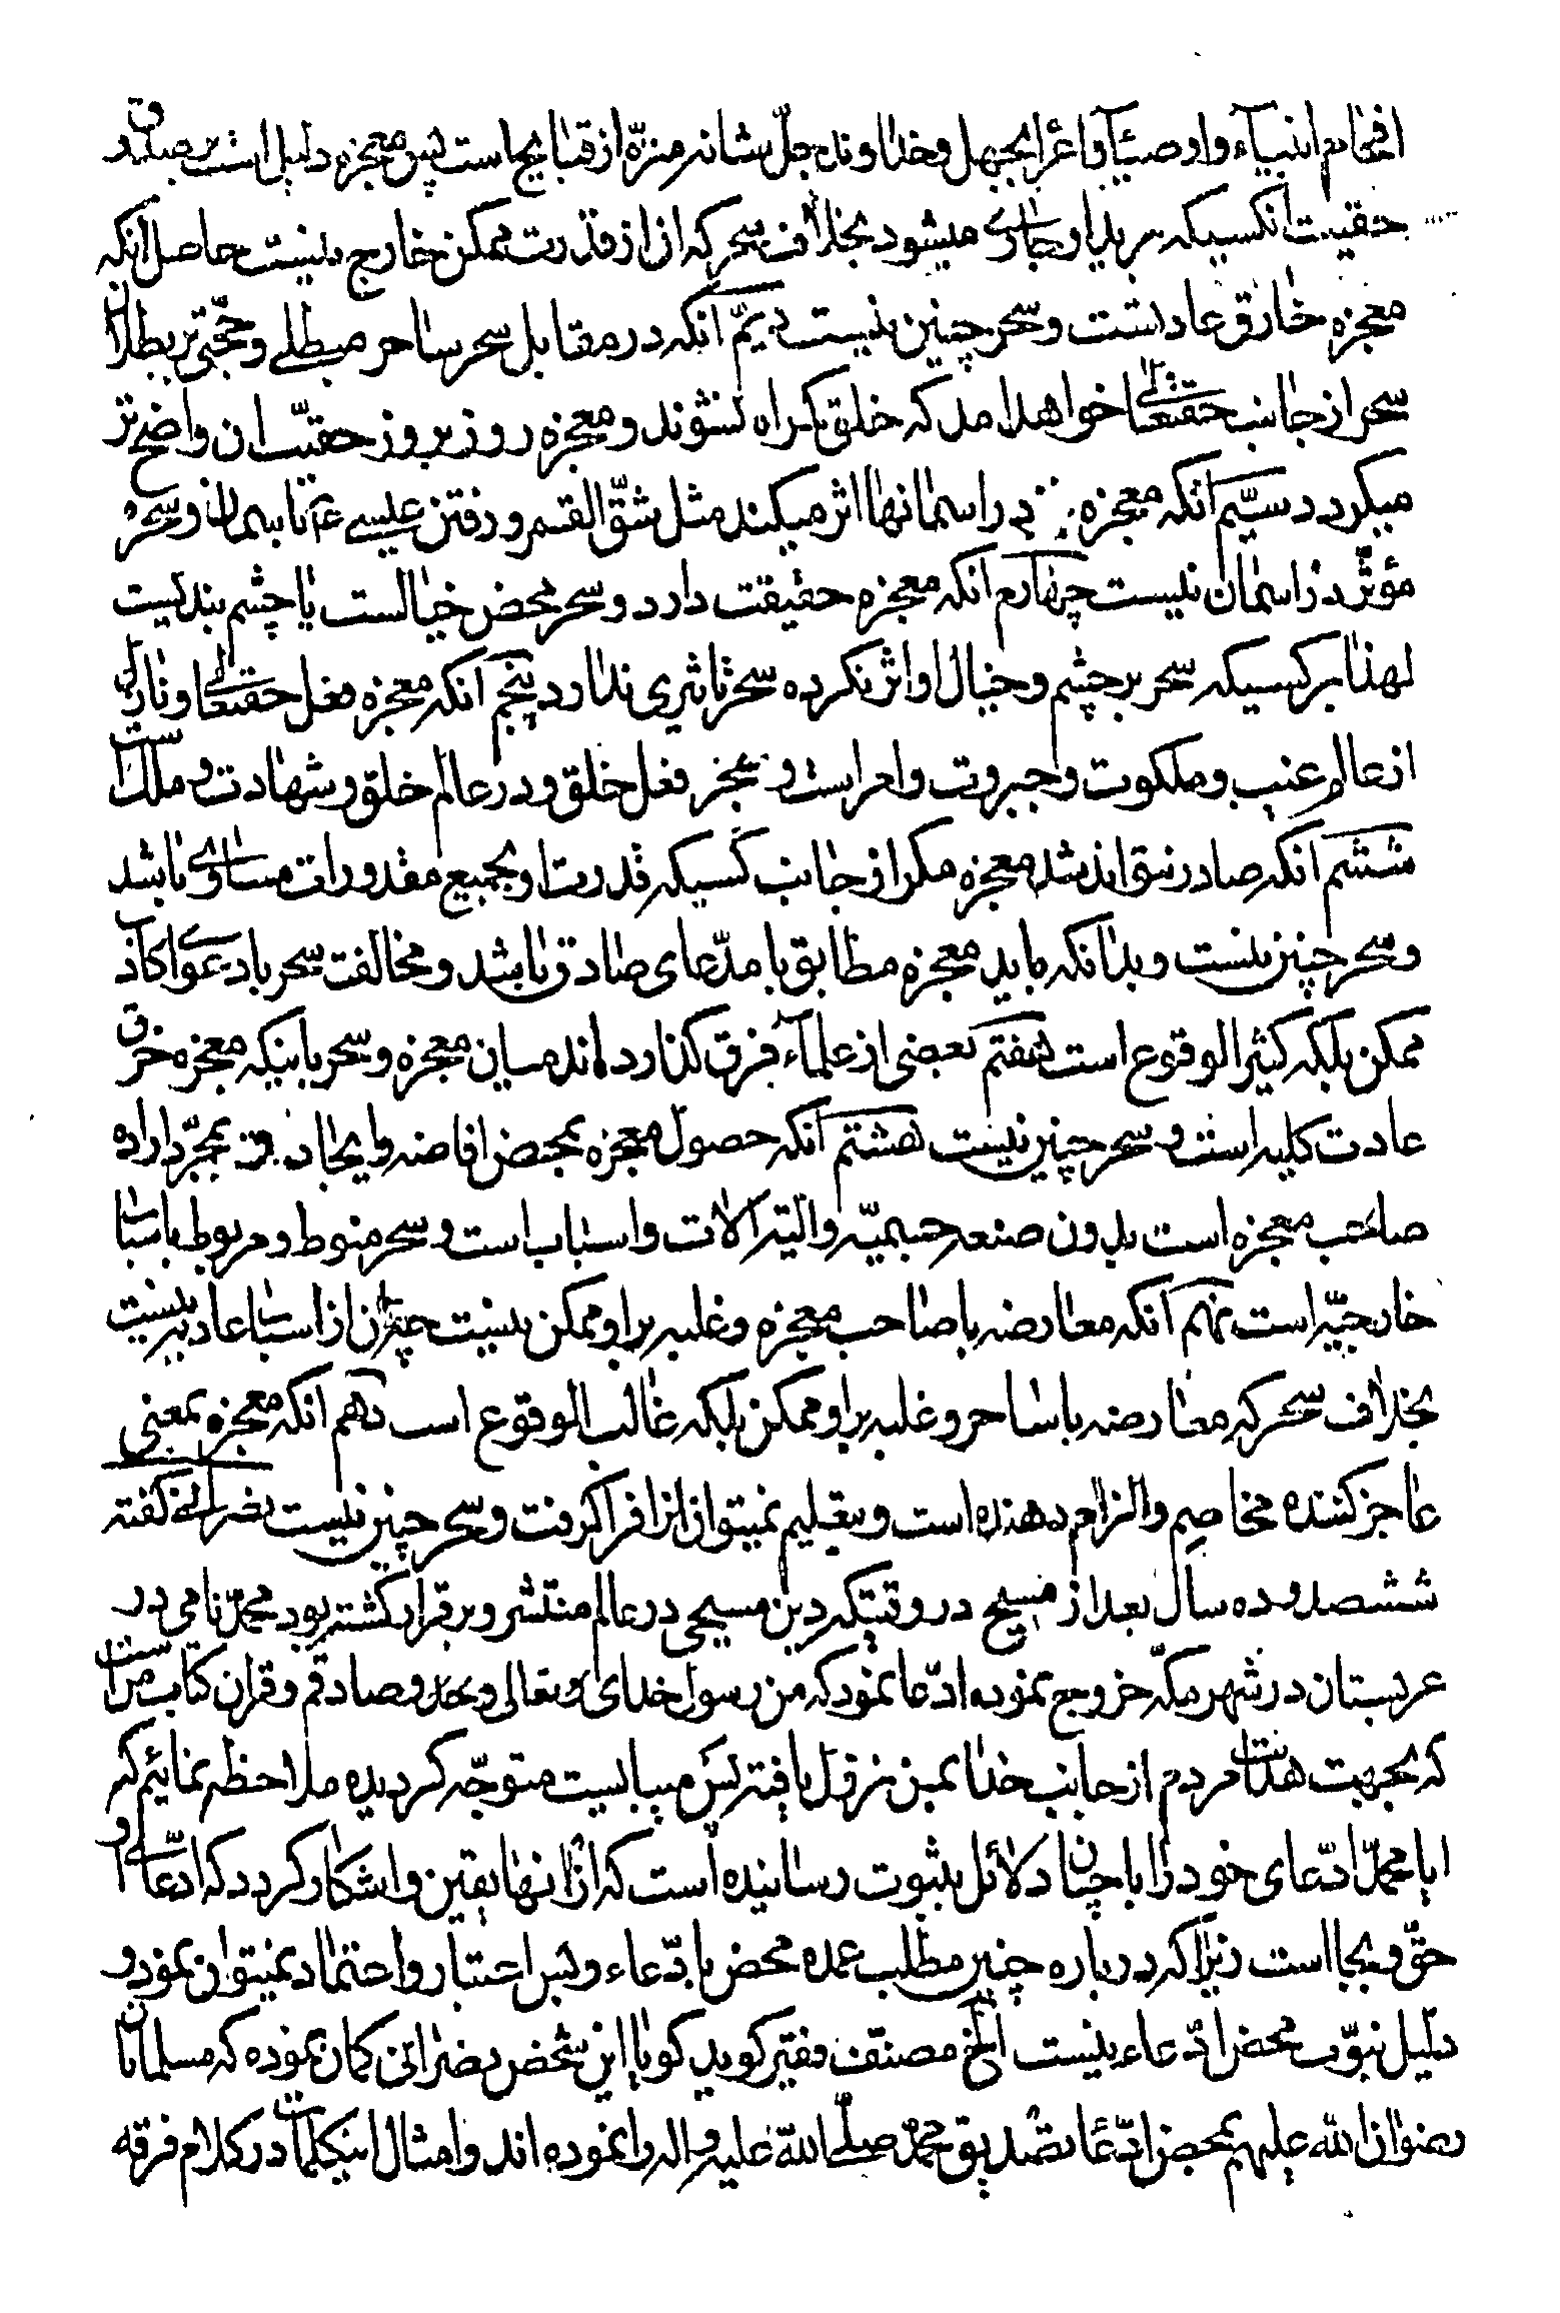 افحام انبیاء و اوصیآء و اغراء بجهل و خداوند جلّ شانه منزّه از قبایح است پس معجزه دلیل است بر صدق و
حقیت انکسیکه بر ید او جاری میشود بخلاف سحر که ان از قدرت ممکن خارج نیست حاصل انکه
معجزه خارق عادتست و سحر چنین نیست دویّم آنکه در مقابل سحر ساحر مبطلی و حجّتی بر بطلان
سحر از جانب حقتعالی خواهد امد که خلق کمراه نشوند و معجزه روز بروز حقیّت ان واضح تر
میکردد سیّم آنکه معجزه در اسمانها اثر میکند مثل شقّ القمر و رفتن عیسی ع تا باسمان و سحر
مؤثّر در اسمان نیست چهارم انکه معجزه حقیقت دارد و سحر محض خیالست یا چشم بندیست
لهذا بر کسیکه سحر بر چشم و خیال او اثر نکرده سحر تاثیری ندارد پنجم آنکه معجزه فعل حقتعالی و نازل
از عالم غیب و ملکوت و جبروت و امر است و سحر فعل خلق و در عالم خلق و شهادت و ملک است
ششم آنکه صادر نتواند شد معجزه مکر از جانب کسیکه قدرت او بجمیع مقدورات مساوی باشد
و سحر چنین نیست و بدانکه باید معجزه مطابق با مدّعای صادق باشد و مخالفت سحر با دعوای کاذب
ممکن بلکه کثیر الوقوع است هفتم بعضی از علمآء فرق کذارده اند میان معجزه و سحر باینکه معجزه خرق
عادت کلیه است و سحر چنین نیست هشتم آنکه حصول معجزه بمحض افاضه و ایجاد بمجرّد اراده
صاحب معجزه است بدون صنعه جسمیّه و الیّه الات و اسباب است و سحر منوط و مربوط باسباب
خارجیّه است نهم آنکه معارضه با صاحب معجزه و غلبه بر او ممکن نیست چه ان از اسباب عادیه نیست
بخلاف سحر که معارضه با ساحر و غلبه بر او ممکن بلکه غالب الوقوع است دهم انکه معجزه بمعنی
عاجز کننده مخاصِم و الزام دهنده است و بتعلیم نمیتوان انرا فرا کرفت و سحر چنین نیست نصرانی کفته
ششصد و ده سال بعد از مسیح در وقتیکه دین مسیحی در عالم منتشر و برقرار کشته بود محمّد نامی در
عربستان در شهر مکّه خروج نموده ادّعا نمود که من رسول خدای تعالی و صادقم و قران کتاب من است
که بجهت هدایت مردم از جانب خدا بمن نزول یافته پس میبایست متوجّه کردیده ملاحظه نمائیم که
ایا محمّد ادّعای خود را با چنان دلائل بثبوت رسانیده است که از انها یقین و اشکار کردد که ادّعای او
حقّ و بجا است زیرا که درباره چنین مطلب عمده محض بادّعاء و بس اعتبار و اعتماد نمیتوان نمود و
دلیل نبوّت محض ادّعاء نیست الخ مصنّف فقیر کوید کویا این شخص نصرانی کمان نموده که مسلمانان
رضوان الله علیهم بمحض ادّعا تصدیق محمّد صلّی الله علیه و اله را نموده اند و امثال اینکلمات در کلام فرقه